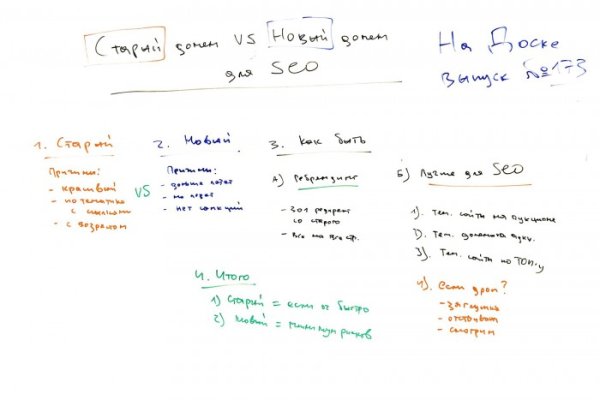 Старый домен VS Новый домен
для SEO
На Доске
выпуск №173
1. Старый
Причины:
- красивый
- по тематике
с ссылками
- с возрастом
VS
2. Новый
Причины:
- дольше
- не
- нет санкций
3. Как быть
А) Ребрендинг
- 301 редирект
со старого
- Все на
Б) Лучше для SEO
1). Тем. сайты на аукционе
2). Тем. домены аукц.
3). Тем. сайты по ТОП-у
4). Если дроп?
- заглушка
- отстаиваем
- смотрим
4. Итого
1) Старый = если оч быстро
2) Новый = минимум рисков